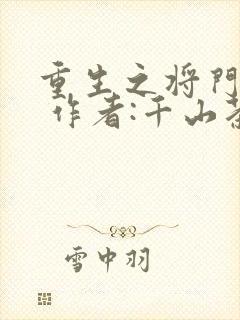 重生之将門
作者:千山
雪中羽